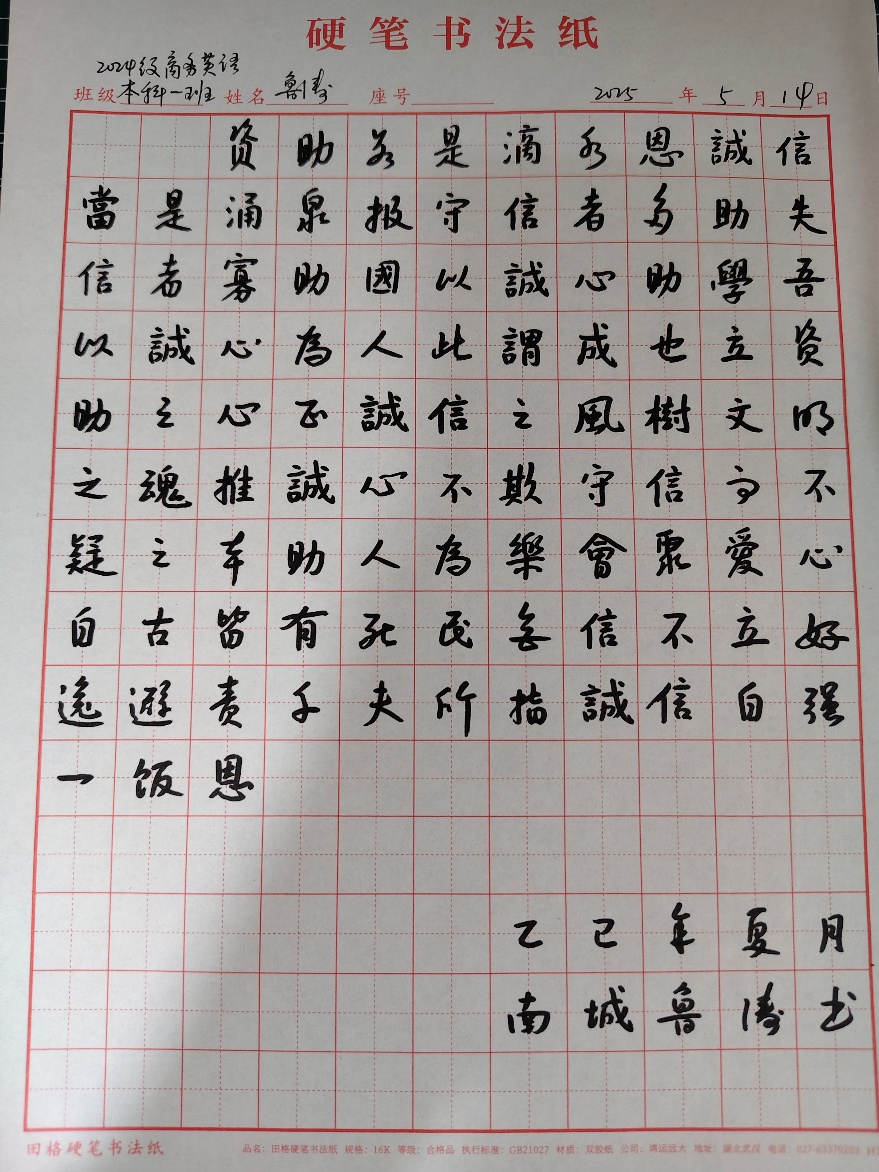 硬笔书法纸
2024级商务英语
班级 本科一班 姓名 鲁涛 座号 2025 年 5 月 14 日
資助若是滴水恩誠信
當是涌泉报守信者多助失
信者寡助國以誠心助學吾
以誠心為人此謂成也立资
助之心正誠信之風樹文明
之魂推誠心不欺守信而不
疑之本助人為樂會聚愛心
自古皆有死民無信不立好
逸避责千夫所指誠信自强
一饭恩
乙已年夏月
南城鲁涛书
田格硬笔书法纸 品名：田格硬笔书法纸 规格：16K 等级：合格品 执行标准：GB21027 材质：双胶纸 公司：鸿运远大 地址：湖北武汉 电话：